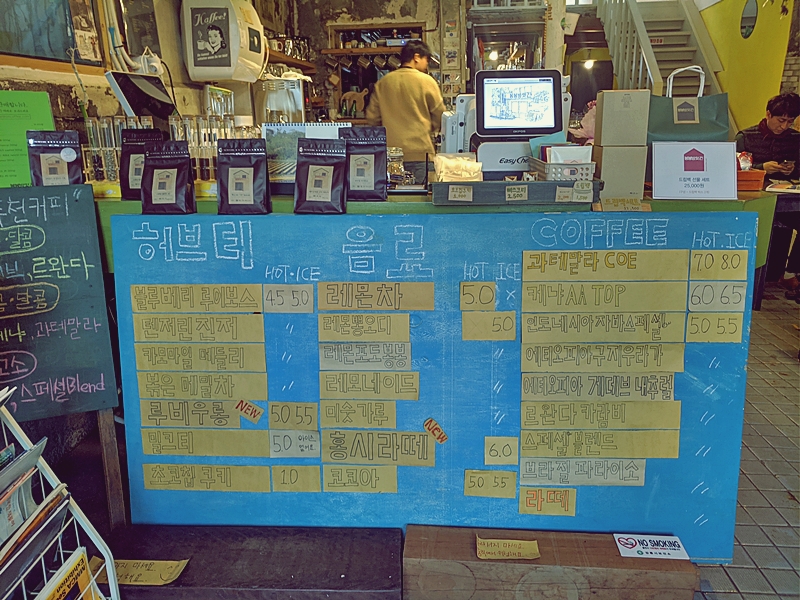 Kaffee!
EasyChe
드립백 선물 세트
25,000원
추천커피
달콤
르완다
달콤
과테말라
고소
스페셜Blend
허브티
HOT·ICE
블루베리 루이보스 45 50
탠저린진저 〃
카모마일 메들리 〃
볶은 메밀차 〃
루브우롱 NEW 50 55
밀크티 50
초코칩 쿠키 1.0
음료
HOT ICE
레몬차 5.0 ×
레몬뽕오디 50
레몬포도봉봉 〃
레모네이드 〃
미숫가루 〃
홍시라떼 NEW 6.0
코코아 50 55
COFFEE
HOT.ICE
과테말라 COE 7.0 8.0
케냐 AA TOP 60 65
인도네시아자바스페셜 50 55
에티오피아구지우라가 〃
에티오피아 게데브 내츄럴 〃
르완다 카람비 〃
스페셜블렌드 〃
브라질 파라이소 〃
라떼 〃
NO SMOKING